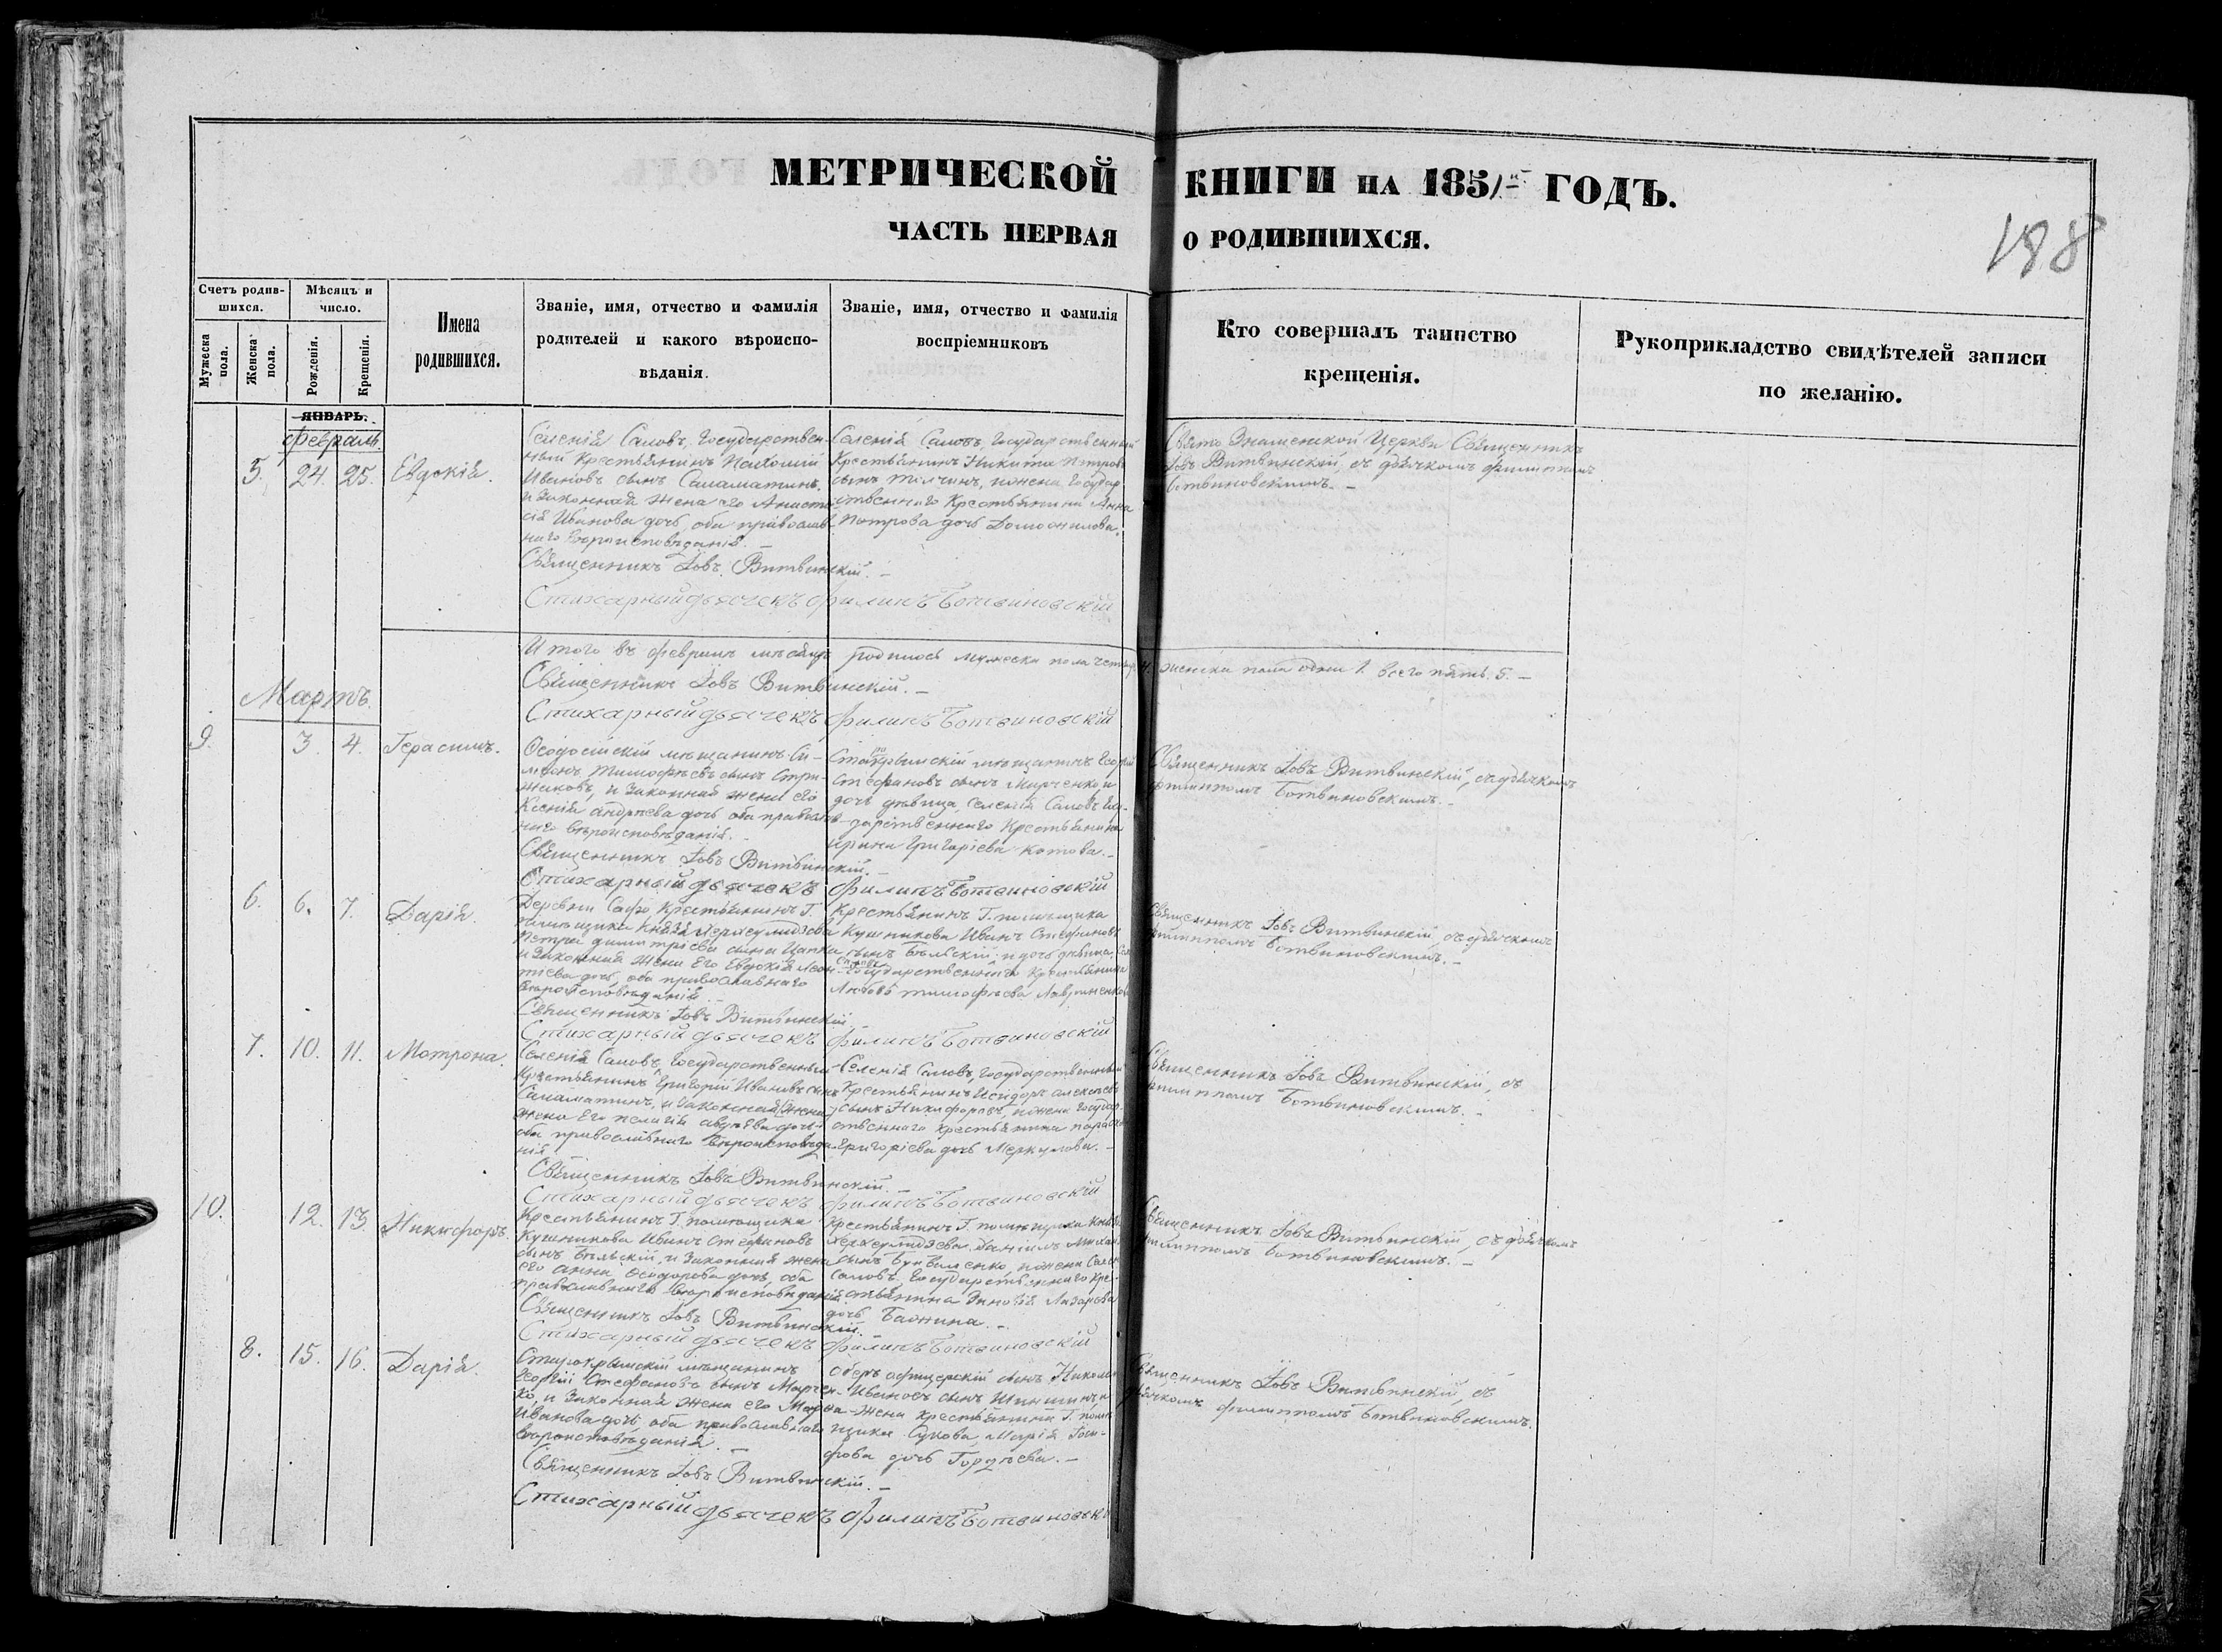 МЕТРИЧЕСКОЙ КНИГИ НА 1851-й ГОДЪ.
ЧАСТЬ ПЕРВАЯ О РОДИВШИХСЯ.
188
Счетъ родив-
шихся.
Мѣсяцъ и
число.
Мужеска
пола.
Женска
пола.
Рожденія.
Крещенія.
Имена
родившихся.
Званіе, имя, отчество и фамилія
родителей и какого вѣроиспо-
вѣданія.
Званіе, имя, отчество и фамилія
воспріемниковъ
Кто совершалъ таинство
крещенія.
Рукоприкладство свидѣтелей записи
по желанію.
ЯНВАРЬ.
Февраль
5. 24. 25. Евдокія.
Селенія Саловъ, Государствен-
ный Крестьянинъ
Ивановъ сынъ Саламатинъ,
и законная жена его Анаста-
сія Иванова дочь, оба православ-
наго вѣроисповѣданія. –
Священникъ Іовъ Витвинскій. –
Стихарный дьячекъ Филипъ Ботвиновскій
Селенія Саловъ, Государственный
Крестьянинъ Никита Петровъ
сынъ и жена Государ-
ственнаго Крестьянина Анна
Петрова дочь
Свято Знаменской Церкви Священникъ
Іовъ Витвинскій, съ дьячкомъ Филиппомъ
Ботвиновскимъ. –
Итого въ февралѣ мѣсяцѣ родилося мужеска пола четыре 4. женска пола одна 1. всего пять. 5. –
Священникъ Іовъ Витвинскій. –
Стихарный дьячекъ Филипъ Ботвиновскій
Мартъ.
9. 3. 4. Герасимъ.
Ѳеодосійскій мѣщанинъ Си-
меонъ Тимофѣевъ сынъ Стри-
жаковъ, и законная жена его
Ксенія Андреева дочь оба православ-
наго вѣроисповѣданія. –
Священникъ Іовъ Витвинскій. –
Стихарный дьячекъ Филипъ Ботвиновскій
Старокрымскій мѣщанинъ Георгій
Стефановъ сынъ Марченко и
дочь дѣвица, селенія Саловъ Госу-
дарственнаго Крестьянина
Ирина Григоріева Котова. –
Священникъ Іовъ Витвинскій, съ дьячкомъ
Филиппомъ Ботвиновскимъ. –
6. 6. 7. Дарія.
Деревни Крестьянинъ Г.
помѣщика Князя
Петра Димитріева сына
и законная жена его Евдокія
дочь, оба православнаго
вѣроисповѣданія.
Священникъ Іовъ Витвинскій
Стихарный дьячекъ Филипъ Ботвиновскій
Крестьянинъ Г. помѣщика
Кушникова Иванъ Стефановъ
сынъ Бѣльскій, и дочь дѣвица
Государственнаго Крестьянина
Любовь Тимофѣева
Священникъ Іовъ Витвинскій, съ дьячкомъ
Филиппомъ Ботвиновскимъ. –
7. 10. 11. Мотрона.
Селенія Саловъ, Государственный
Крестьянинъ Григорій Ивановъ сынъ
Саламатинъ, и законная
жена его Пелагія дочь
оба православнаго вѣроисповѣда-
нія
Священникъ Іовъ Витвинскій. –
Стихарный дьячекъ Филипъ Ботвиновскій
Селенія Саловъ, Государственный
Крестьянинъ Исидоръ Алексѣевъ
сынъ Никифоровъ, и жена Государ-
ственнаго Крестьянина
Григоріева дочь Меркулова. –
Священникъ Іовъ Витвинскій, съ
Филиппомъ Ботвиновскимъ. –
10. 12. 13. Никифоръ.
Крестьянинъ Г. помѣщика
Кушникова Иванъ Стефановъ
сынъ Бѣльскій, и законная жена
его Анна Ѳеодорова дочь, оба
православнаго вѣроисповѣданія
Священникъ Іовъ Витвинскій.
Стихарный дьячекъ Филипъ Ботвиновскій
Крестьянинъ Г. помѣщика Князя
Даніилъ
сынъ и жена
Саловъ Государственнаго Кре-
стьянина Зиновія Лазарева
дочь –
Священникъ Іовъ Витвинскій, съ дьячкомъ
Филиппомъ Ботвиновскимъ. –
8. 15. 16. Дарія.
Старокрымскій мѣщанинъ
Георгій Стефановъ сынъ Марчен-
ко, и законная жена его
Иванова дочь, оба православнаго
вѣроисповѣданія. –
Священникъ Іовъ Витвинскій. –
Стихарный дьячекъ Филипъ Ботвиновскій
Оберъ офицерскій сынъ Николай
Ивановъ сынъ
жена Крестьянина Г. помѣ-
щика Марія
дочь Гордѣева. –
Священникъ Іовъ Витвинскій, съ
дьячкомъ Филиппомъ Ботвиновскимъ.